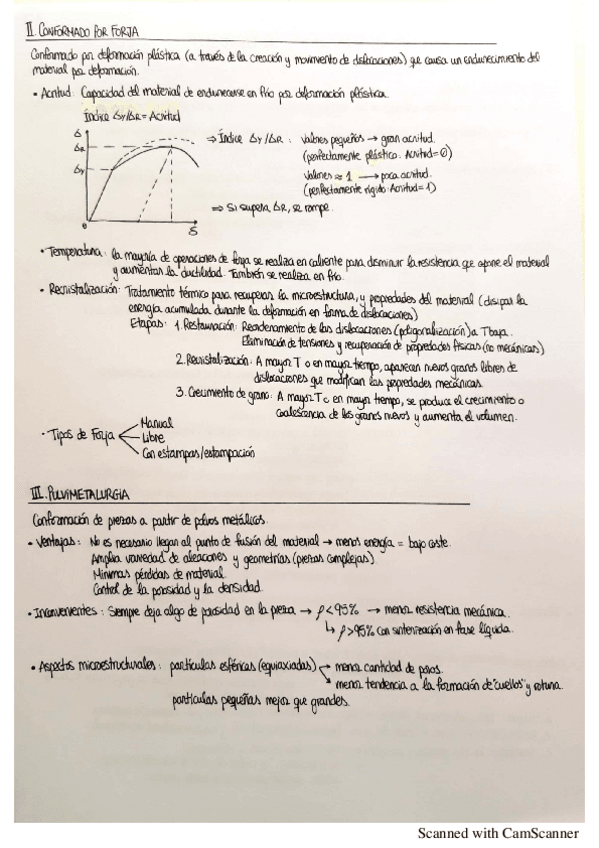 II. CONFORMADO POR FORJA
Conformado por deformación plástica (a través de la creación y movimiento de dislocaciones) que causa un endurecimiento del
material por deformación.
• Acritud: Capacidad del material de endurecerse en frío por deformación plástica.
Índice Δy/ΔR = Acritud
Δ
ΔR
Δy
0
δ
⇒ Índice Δy/ΔR : Valores pequeños → gran acritud.
(perfectamente plástico: Acritud=0)
Valores ≈ 1 → poca acritud.
(perfectamente rígido: Acritud=1)
⇒ Si supera ΔR, se rompe.
• Temperatura: la mayoría de operaciones de forja se realiza en caliente para disminuir la resistencia que opone el material
y aumentar la ductilidad. También se realiza en frío.
• Recristalización: Tratamiento térmico para recuperar la microestructura, y propiedades del material (disipar la
energía acumulada durante la deformación en forma de dislocaciones)
Etapas: 1. Restauración: Reordenamiento de las dislocaciones (poligonalización) a T baja.
Eliminación de tensiones y recuperación de propiedades físicas (no mecánicas)
2. Recristalización: A mayor T o en mayor tiempo, aparecen nuevos granos libres de
dislocaciones que modifican las propiedades mecánicas.
3. Crecimiento de grano: A mayor T o en mayor tiempo, se produce el crecimiento o
coalescencia de los granos nuevos y aumenta el volumen.
• Tipos de Forja
Manual
Libre
Con estampas/estampación
III. PULVIMETALURGIA
Conformación de piezas a partir de polvos metálicos.
• Ventajas: No es necesario llegar al punto de fusión del material → menos energía = bajo coste.
Amplia variedad de aleaciones y geometrías (piezas complejas)
Mínimas pérdidas de material.
Control de la porosidad y la densidad.
• Inconvenientes: Siempre deja algo de porosidad en la pieza → ρ<95% → menor resistencia mecánica.
↳ ρ>95% con sinterización en fase líquida.
• Aspectos microestructurales: partículas esféricas (equiaxiadas) → menor cantidad de poros.
→ menor tendencia a la formación de "cuellos" y rotura.
partículas pequeñas mejor que grandes.
Scanned with CamScanner